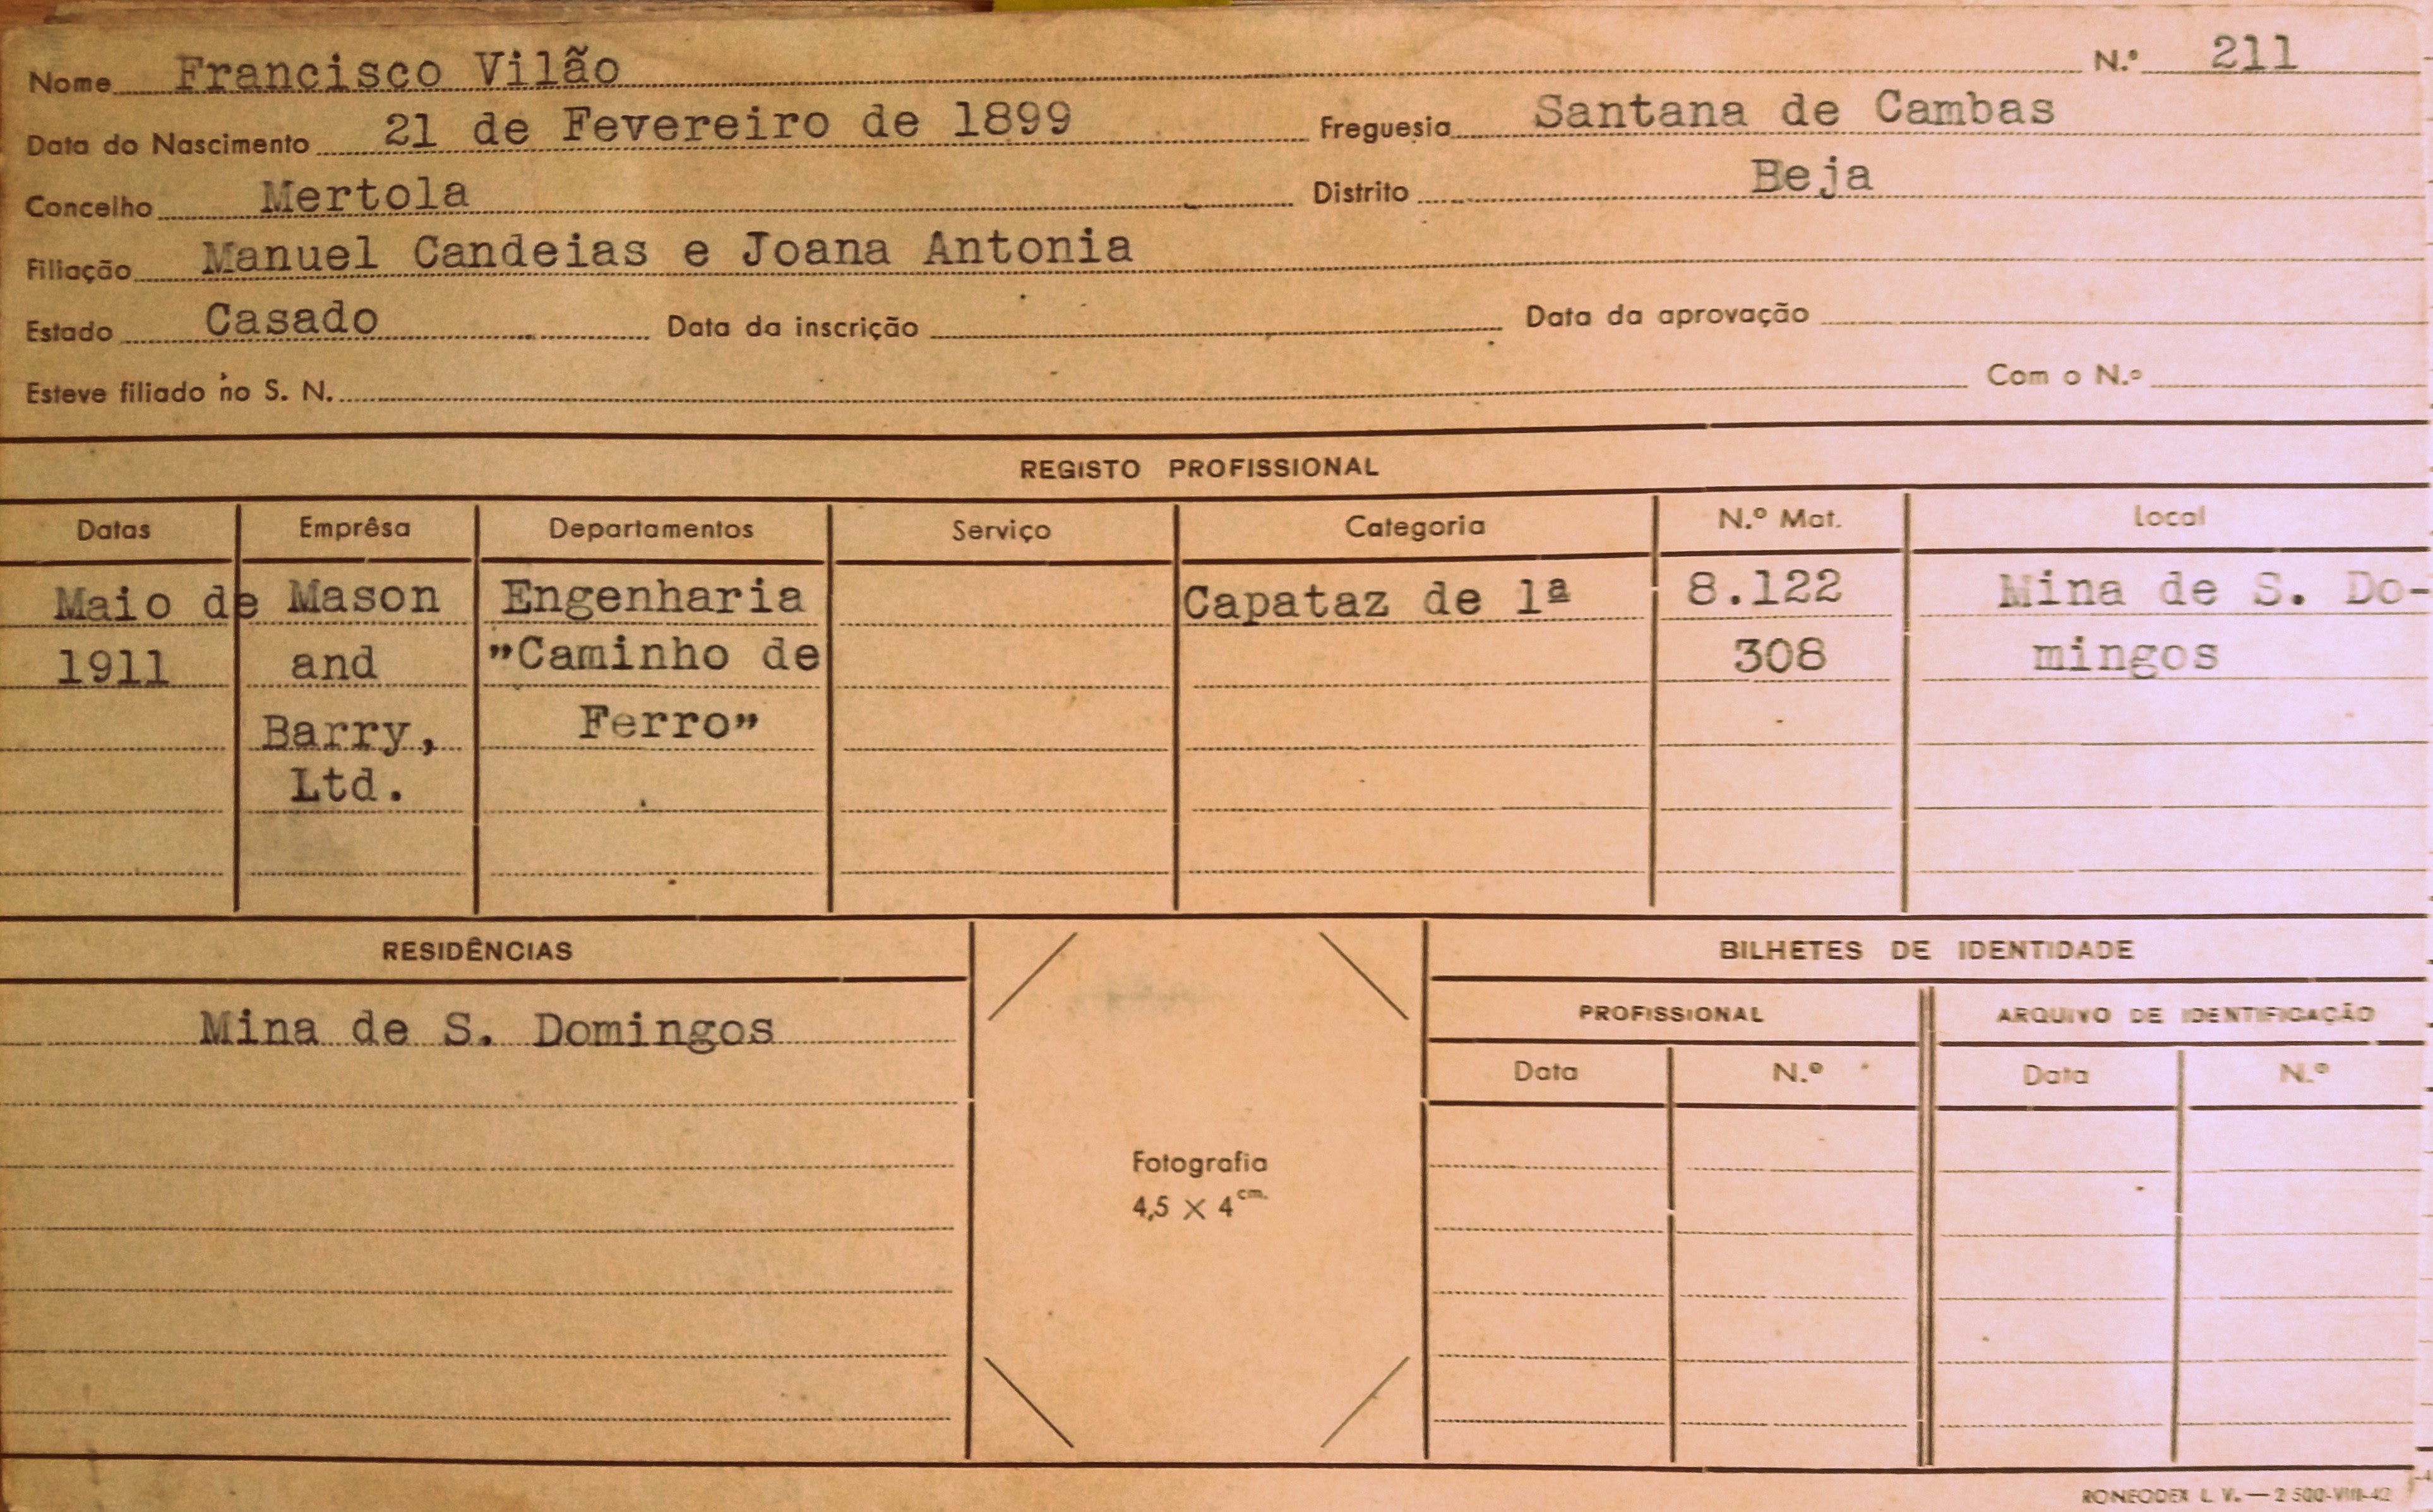 Nome Francisco Vilão N.º 211
Data do Nascimento 21 de Fevereiro de 1899 Freguesia Santana de Cambas
Concelho Mertola Distrito Beja
Filiação Manuel Candeias e Joana Antonia
Estado Casado Data da inscrição Data da aprovação
Esteve filiado no S. N. Com o N.º
REGISTO PROFISSIONAL
Datas Emprêsa Departamentos Serviço Categoria N.º Mat. Local
Maio de Mason Engenharia Capataz de 1ª 8.122 Mina de S. Do-
1911 and "Caminho de 308 mingos
Barry, Ferro"
Ltd.
RESIDÊNCIAS BILHETES DE IDENTIDADE
PROFISSIONAL ARQUIVO DE IDENTIFICAÇÃO
Mina de S. Domingos
Data N.º Data N.º
Fotografia
4,5 × 4 cm.
RONEODEX L. V. — 2 500-VIII-42